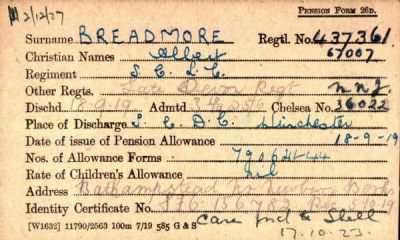 2/12/27 PENSION FORM 26D.
Surname BREADMORE Regtl. No. 437361
Christian Names Albert 67007
Regiment S. C. L. C.
Other Regts. Late Devon Regt
Dischd. 18 9 19 Admtd. Chelsea No. 36022
Place of Discharge I. C. D. C. Winchester
Date of issue of Pension Allowance 18-9-19
Nos. of Allowance Forms
Rate of Children's Allowance nil
Address Bathampstead Nr Newbury Berks
Identity Certificate No. 816.156782
Care
[W1632] 11790/2563 100m 7/19 585 G & S 17.10.23.